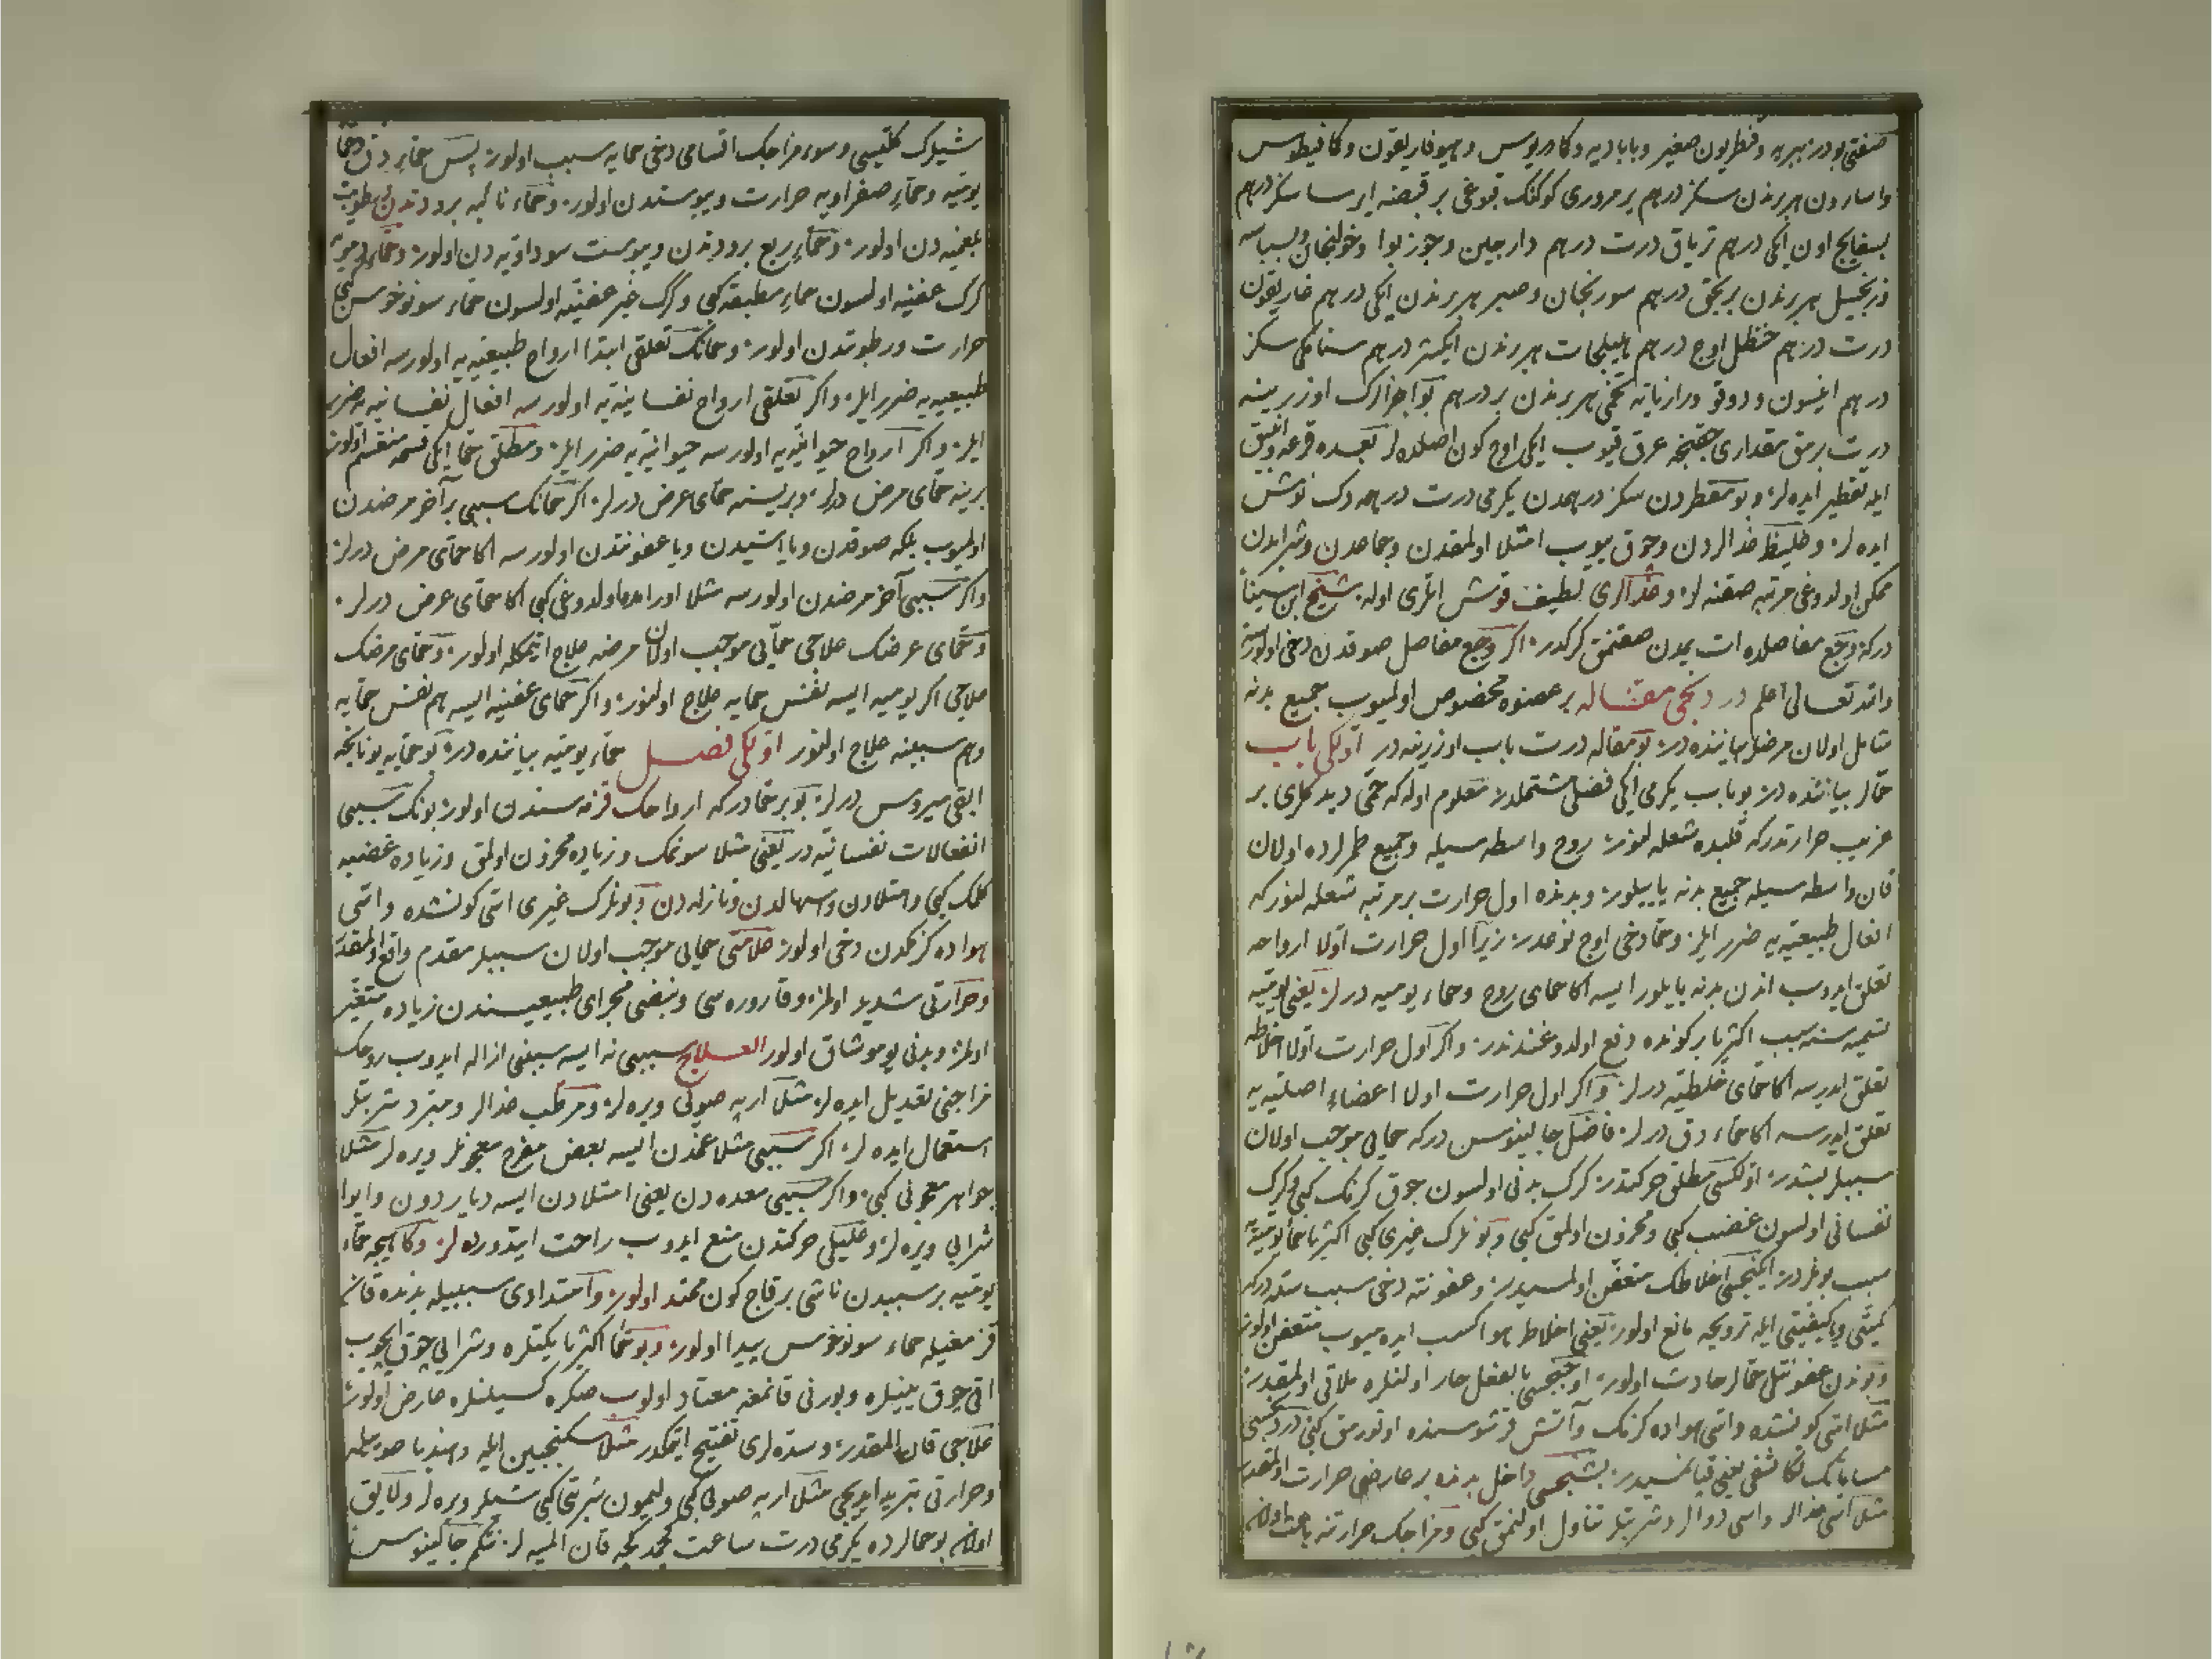 صنعتی بودر هبریه وقنطریون صغیر وبابادیه وکمادریوس وهیوفاریقون وکمافیطوس
واسارون هر برندن سکز درهم بر مروری کوکنک قبوغی بر قبضه ایرسا سکز درهم
بسفایج اون ایکی درهم تریاق درت درهم دارچین وجوز بوا وخولنجان وبسباسه
زنجبیل هر برندن بر بچق درهم سورنجان وصبر هر برندن ایکی درهم غاریقون
درت درهم حنظل اوچ درهم هلیلجات هر برندن ایکیشر درهم سنامکی سکز
درهم انیسون ودوقو ورازیانه تخمی هر برندن بر درهم بو اجزالرک اوزرینه
درت برمق مقداری چقنجه عرق قیوب ایکی اوچ کون اصلده لر بعده قرعه وانبیق
ایله تقطیر ایده لر وبو مقطردن سکز درهمدن یکرمی درت درهمه دک نوش
ایده لر وغلیظ غدالردن وچوق ییوب امتلا اولمقدن وجماعدن وشرابدن
ممکن اولدوغی مرتبه صقنه لر وغدالری لطیف قوش اتلری اوله شیخ ابن سینا
درکه وجع مفاصلده ات یمدن صقنمق کرکدر اکر وجع مفاصل صوقدن دخی اولورسه
والله تعالی اعلم دردنجی مقاله بر عضوه مخصوص اولمیوب جمیع بدنه
شامل اولان مرضلر بیاننده در بو مقاله درت باب اوزرینه در اولکی باب
حمالر بیاننده در بو باب یکرمی ایکی فصلی مشتملدر معلوم اوله که حمی دیدکلری بر
غریب حرارتدر که قلبده شعله لنور روح واسطه سیله وجمیع طمرلرده اولان
قان واسطه سیله جمیع بدنه یاییلور وبدنده اول حرارت بر مرتبه شعله لنور که
افعال طبیعیه یه ضرر ایلر وحما دخی اوچ نوعدر زیرا اول حرارت اولا ارواحه
تعلق ایدوب اندن بدنه یاییلور ایسه اکا حمای روح وحماء یومیه درلر یعنی یومیه
تسمیه سنه سبب اکثریا بر کونده دفع اولدوغندندر واکر اول حرارت اولا اخلاطه
تعلق ایدرسه اکا حمای خلطیه درلر واکر اول حرارت اولا اعضاء اصلیه یه
تعلق ایدرسه اکا حماء دق درلر فاضل جالینوس درکه حمایی موجب اولان
سببلر بشدر اولکسی مطلق حرکتدر کرک بدنی اولسون چوق کزمک کبی وکرک
نفسانی اولسون غضب کبی ومحزون اولمق کبی وبونلرک غیری کبی اکثریا حما یومیه یه
سبب بونلردر ایکنجسی اخلاطک متعفن اولمسیدر وعفونته دخی سبب سده درکه
کمیتی ویا کیفیتی ایله ترویحه مانع اولور یعنی اخلاط هوا کسب ایده میوب متعفن اولور
وبوندن عفونتلی حمالر حادث اولور اوچنجسی بالفعل حار اولنلره ملاقی اولمقدر
مثلا اتشی کونشده واتشی هواده کزمک وآتش قرشوسنده اوتورمق کبی دردنجسی
مساماتک تکاثفی یعنی قپانمسیدر بشنجسی داخل بدنده بر عارضی حرارت اولمقدر
مثلا اسی غدالر واسی دوالر وشربتلر تناول اولنمق کبی ومزاجک حرارتنه باعث اولان
شیلرک کلیسی وسوء مزاجک اقسامی دخی حمایه سبب اولور پس حماء دق وحما
یومیه وحماء صفراویه حرارت ویبوستدن اولور وحماء نائبه برودتدن رطوبت
بلغمیه دن اولور وحماء ربع برودتدن ویبوست سوداویه دن اولور وحماء دمویه
کرک عفنیه اولسون حماء مطبقه کبی وکرک غیر عفنیه اولسون حماء سونوخوس کبی
حرارت ورطوبتدن اولور وحمانک تعلقی ابتدا ارواح طبیعیه یه اولورسه افعال
طبیعیه یه ضرر ایلر واکر تعلقی ارواح نفسانیه یه اولورسه افعال نفسانیه یه ضرر
ایلر واکر ارواح حیوانیه یه اولورسه حیوانیه یه ضرر ایلر ومطلق حما ایکی قسمه منقسم اولور
برینه حمای مرض درلر وبریسنه حمای عرض درلر اکر حمانک سببی بر آخر مرضدن
اولمیوب بلکه صوقدن ویا استیدن ویا عفونتدن اولورسه اکا حمای مرض درلر
واکر سببی آخر مرضدن اولورسه مثلا اورامده اولدوغی کبی اکا حمای عرض درلر
وحمای عرضک علاجی حمایی موجب اولان مرضه علاج ایتمکله اولور وحمای مرضک
علاجی اکر یومیه ایسه نفس حمایه علاج اولنور واکر حمای عفنیه ایسه هم نفس حمایه
وهم سببنه علاج اولنور اولکی فصل حماء یومیه بیاننده در بو حمایه یونانجه
ایقیمیروس درلر بو بر حمادر که ارواحک قزمه سندن اولور بونک سببی
انفعالات نفسانیه در یعنی مثلا سونمک وزیاده محزون اولمق وزیاده غضبه
کلمک کبی وامتلادن واسهالدن ونازله دن وبونلرک غیری اتشی کونشده واتشی
هواده کزمکدن دخی اولور علامتی حمایی موجب اولان سببلر مقدم واقع اولمقدر
وحرارتی شدید اولمز وقاروره سی ونبضی مجرای طبیعیسندن زیاده متغیر
اولمز وبدنی یومشاق اولور العلاج سببی نه ایسه سببنی ازاله ایدوب روحک
مزاجنی تعدیل ایده لر مثلا ارپه صویی ویره لر ومرطب غدالر ومبرد شربتلر
استعمال ایده لر اکر سببی مثلا غمدن ایسه بعض مفرح معجونلر ویره لر مثلا
جواهر معجونی کبی واکر سببی معده دن یعنی امتلادن ایسه دیاریدون وایوا
شرابی ویره لر وعلیلی حرکتدن منع ایدوب راحت ایتدوره لر وکاهیجه حماء
یومیه بر سببدن ناشی بر قاچ کون ممتد اولور وامتدادی سببیله بدنده قانی
قزمغیله حماء سونوخوس پیدا اولور وبو حما اکثریا یکتلره وشرابی چوق ایچوب
اتی چوق یینلره وبورنی قانمغه معتاد اولوب صکره کسیلنلره عارض اولور
علاجی قان المقدر وسده لری تفتیح ایتمکدر مثلا سکنجبین ایله وهندبا صویله
وحرارتی تبرید ایدیجی مثلا ارپه صویی کبی ولیمون شربتی کبی شیلر ویره لر ولایق
اولان بو حمالرده یکرمی درت ساعت کچمدیکجه قان المیه لر نتکم جالینوس